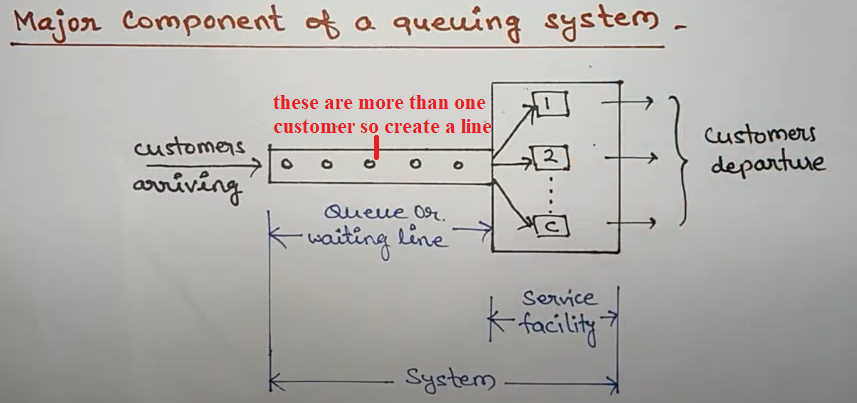 Major component of a queuing system -
these are more than one
customer so create a line
customers
arriving
1
2
c
customers
departure
Queue or.
waiting line
Service
facility
System